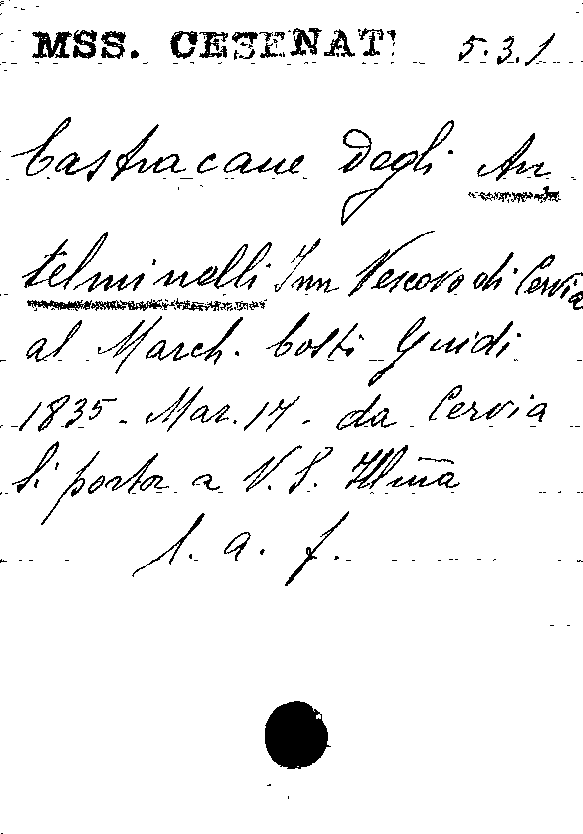 MSS. CESENATI 5.3.1
Castracane degli An
telminelli Inn Vescovo di Cervia
al March. Costi Guidi
1835. Mar. 17. da Cervia
Si porta a V. S. Illm̃a
l. a. f.